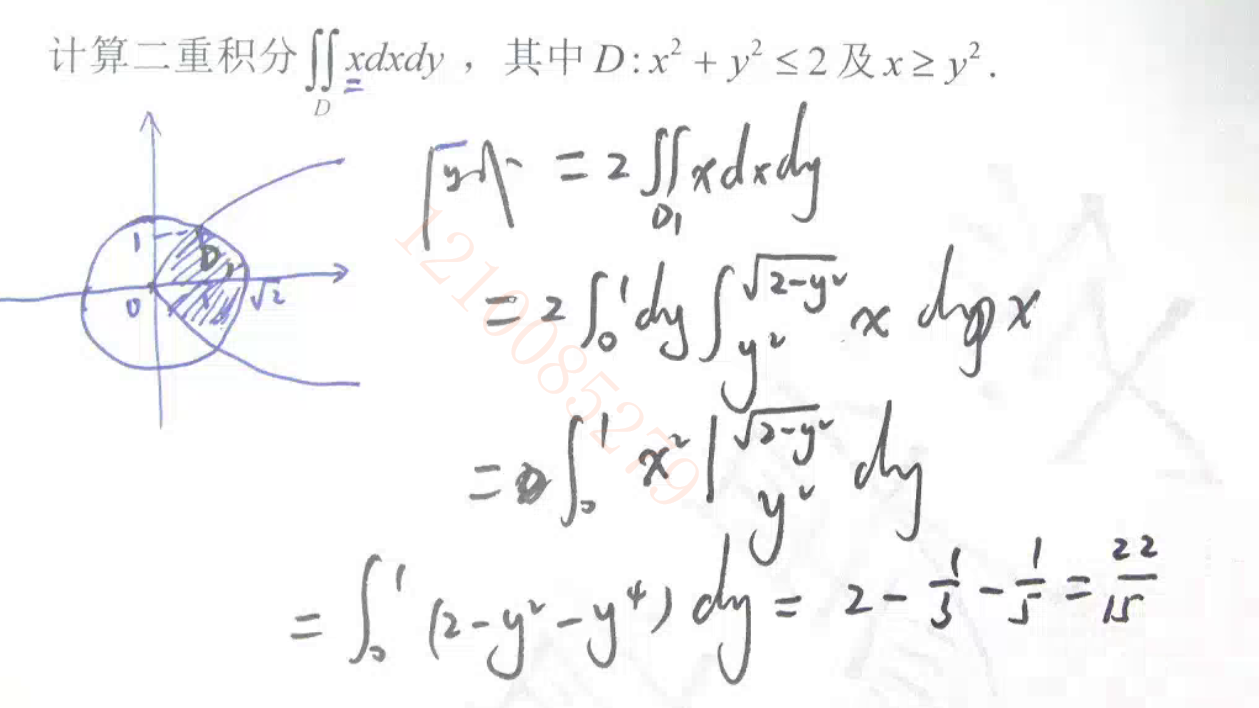 计算二重积分∬_D xdxdy，其中D:x²+y²≤2及x≥y².
= 2∬_{D₁} xdxdy
1
D₁
0
√2
= 2∫₀¹dy∫_{y²}^{√(2-y²)} x dx
= ∫₀¹ x²|_{y²}^{√(2-y²)} dy
= ∫₀¹ (2-y²-y⁴) dy = 2 - 1/3 - 1/5 = 22/15
1210085279